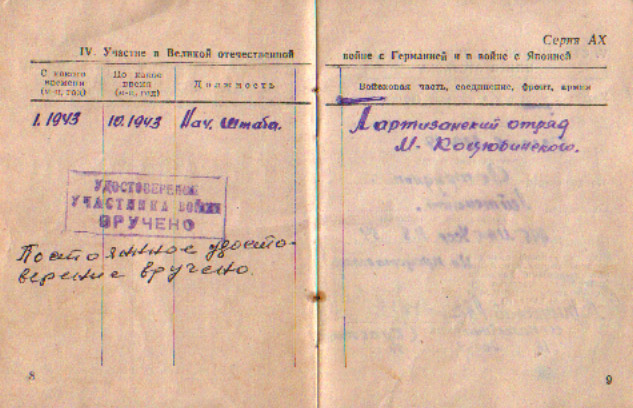 IV. Участие в Великой отечественной
С какого времени (м-ц, год)
По какое время (м-ц, год)
Должность
1.1943
10.1943
Нач. штаба.
УДОСТОВЕРЕНИЕ
УЧАСТНИКА ВОЙНЫ
ВРУЧЕНО
Постоянное удосто-
верение вручено.
8
Серия АХ
войне с Германией и в войне с Японией
Войсковая часть, соединение, фронт, армия
Партизанский отряд
М. Коцюбинского.
9